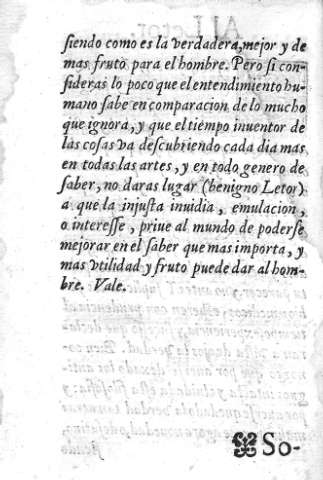 siendo como es la verdadera, mejor y de
mas fruto para el hombre. Pero si con-
sideras lo poco que el entendimiento hu-
mano sabe en comparacion de lo mucho
que ignora, y que el tiempo inuentor de
las cosas va descubriendo cada dia mas
en todas las artes, y en todo genero de
saber, no daras lugar (benigno Letor)
a que la injusta inuidia, emulacion,
o interesse, priue al mundo de poderse
mejorar en el saber que mas importa, y
mas vtilidad y fruto puede dar al hom-
bre. Vale.
So-